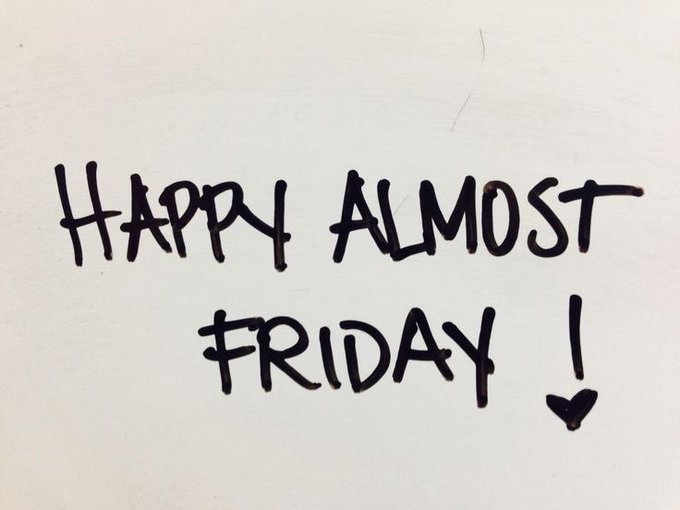 HAPPY ALMOST
FRIDAY !